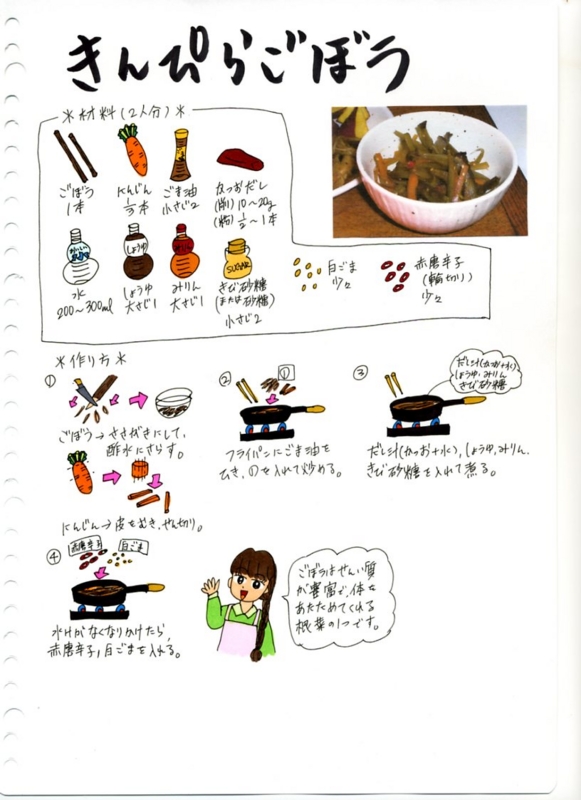 きんぴらごぼう
＊材料(2人分)＊
ごぼう
1本
にんじん
1/3本
ごま油
小さじ2
かつおだし
(削) 10〜20g
(粉) 1/2〜1本
おいしい
水
200〜300ml
しょうゆ
しょうゆ
大さじ1
みりん
大さじ1
SUGAR
きび砂糖
(または砂糖)
小さじ2
白ごま
少々
赤唐辛子
(輪切り)
少々
＊作り方＊
①
ごぼう→ささがきにして、
酢水にさらす。
にんじん→皮をむき、せん切り。
②
①
フライパンにごま油を
ひき、①を入れて炒める。
③
だし汁(かつお+水)
しょうゆ、みりん
きび砂糖
だし汁(かつお+水)、しょうゆ、みりん、
きび砂糖を入れて煮る。
④
赤唐辛子
白ごま
水けがなくなりかけたら、
赤唐辛子、白ごまを入れる。
ごぼうはせんい質
が豊富で、体を
あたためてくれる
根菜の1つです。